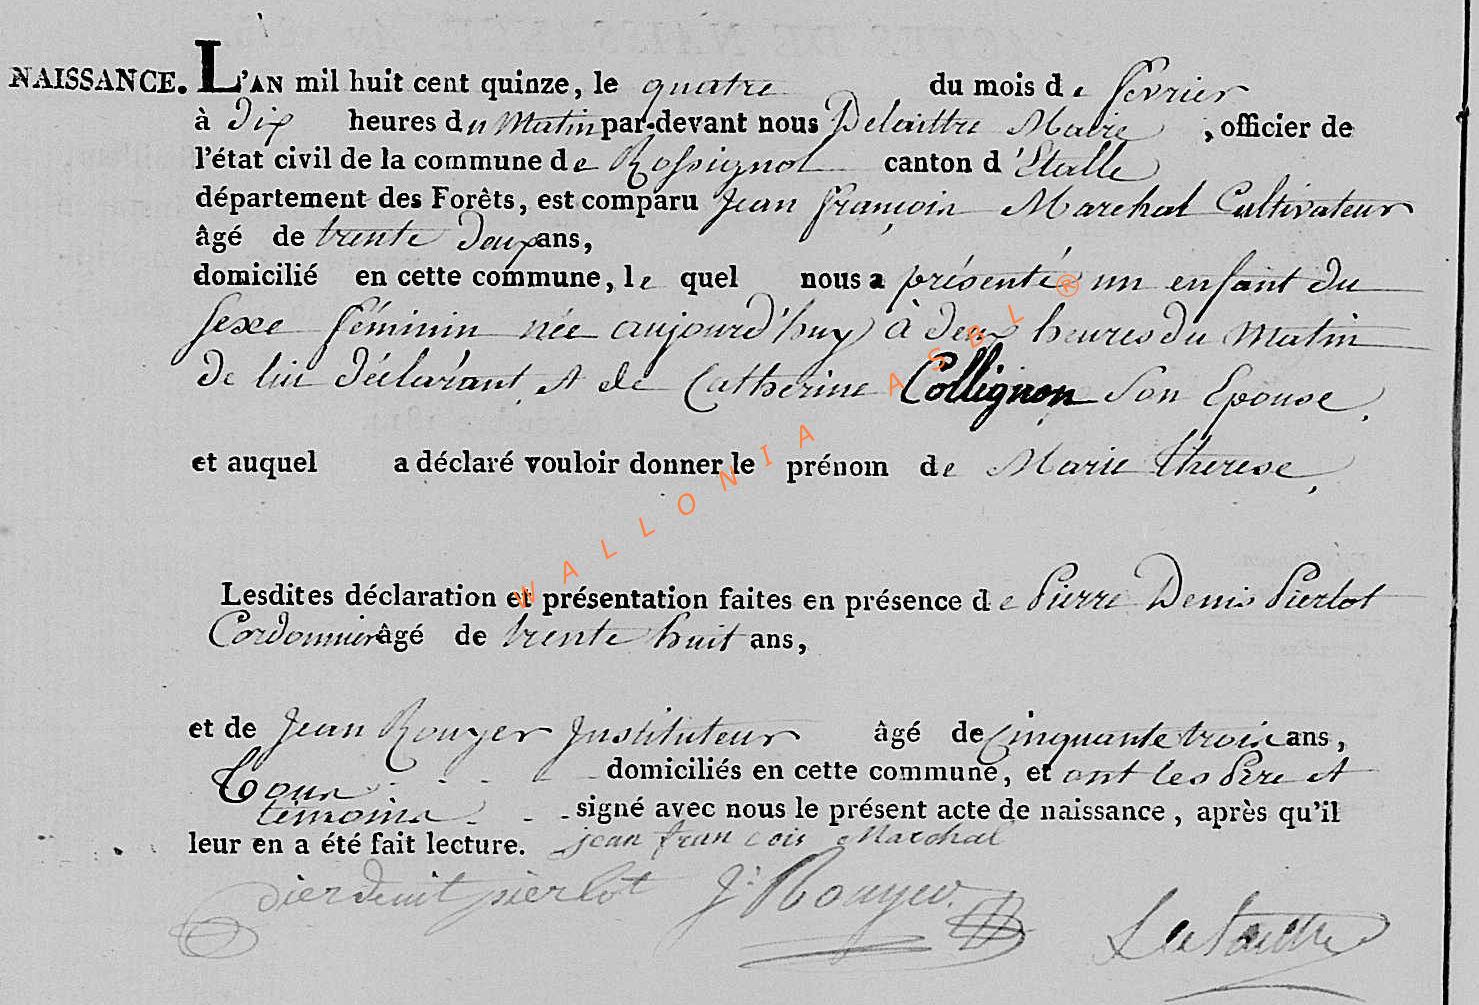 NAISSANCE. L'AN mil huit cent quinze, le quatre du mois de fevrier
à dix heures du Matin par-devant nous Delaittre Maire, officier de
l'état civil de la commune de Rossignol canton d'Etalle
département des Forêts, est comparu Jean françois Marchal Cultivateur
âgé de trente deux ans,
domicilié en cette commune, le quel nous a présenté un enfant du
sexe féminin née aujourd'huy à deux heures du Matin
de lui déclarant, et de Catherine Collignon son Epouse,
et auquel a déclaré vouloir donner le prénom de Marie therese,
Lesdites déclaration et présentation faites en présence de Pierre Denis Pierlot
Cordonnier âgé de trente huit ans,
et de Jean Rouyer Instituteur âgé de Cinquante trois ans,
Tous domiciliés en cette commune, et ont les Pere et
temoins signé avec nous le présent acte de naissance, après qu'il
leur en a été fait lecture. jean francois Marchal
pierlot J: Rouyer. Delaittre
WALLONIA ASBL ®